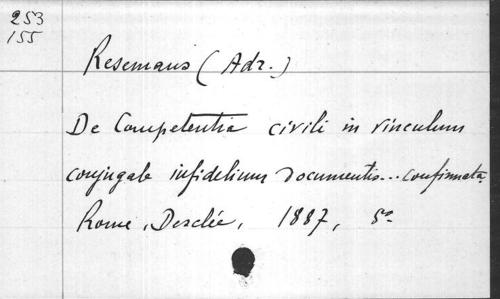 253
155
Resemans (Adr.)
De Competentia civili in vinculum
conjugale infidelium documentis... confirmata.
Rome, Desclée, 1887, 8º